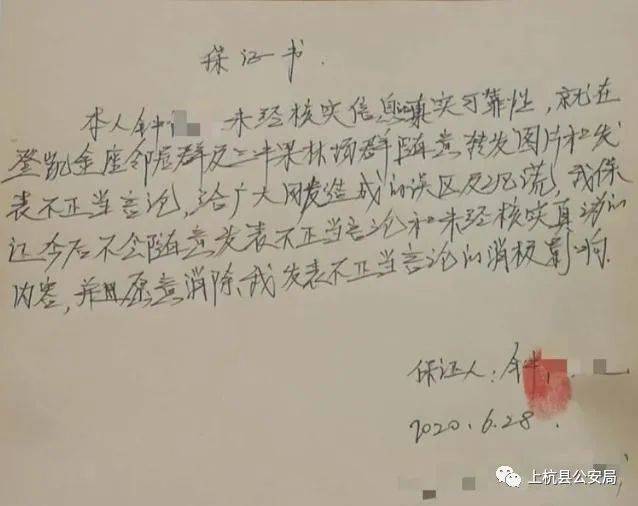 保证书.
本人钟 未经核实信息真实可靠性，就在
登凯金座邻居群及二牛果林场群随意转发图片和发
表不正当言论，给广大网友造成的误区及恐慌，我保
证今后不会随意发表不正当言论和未经核实真 的
内容，并且愿意消除我发表不正当言论的消极影响.
保证人：钟
2020.6.28.
上杭县公安局